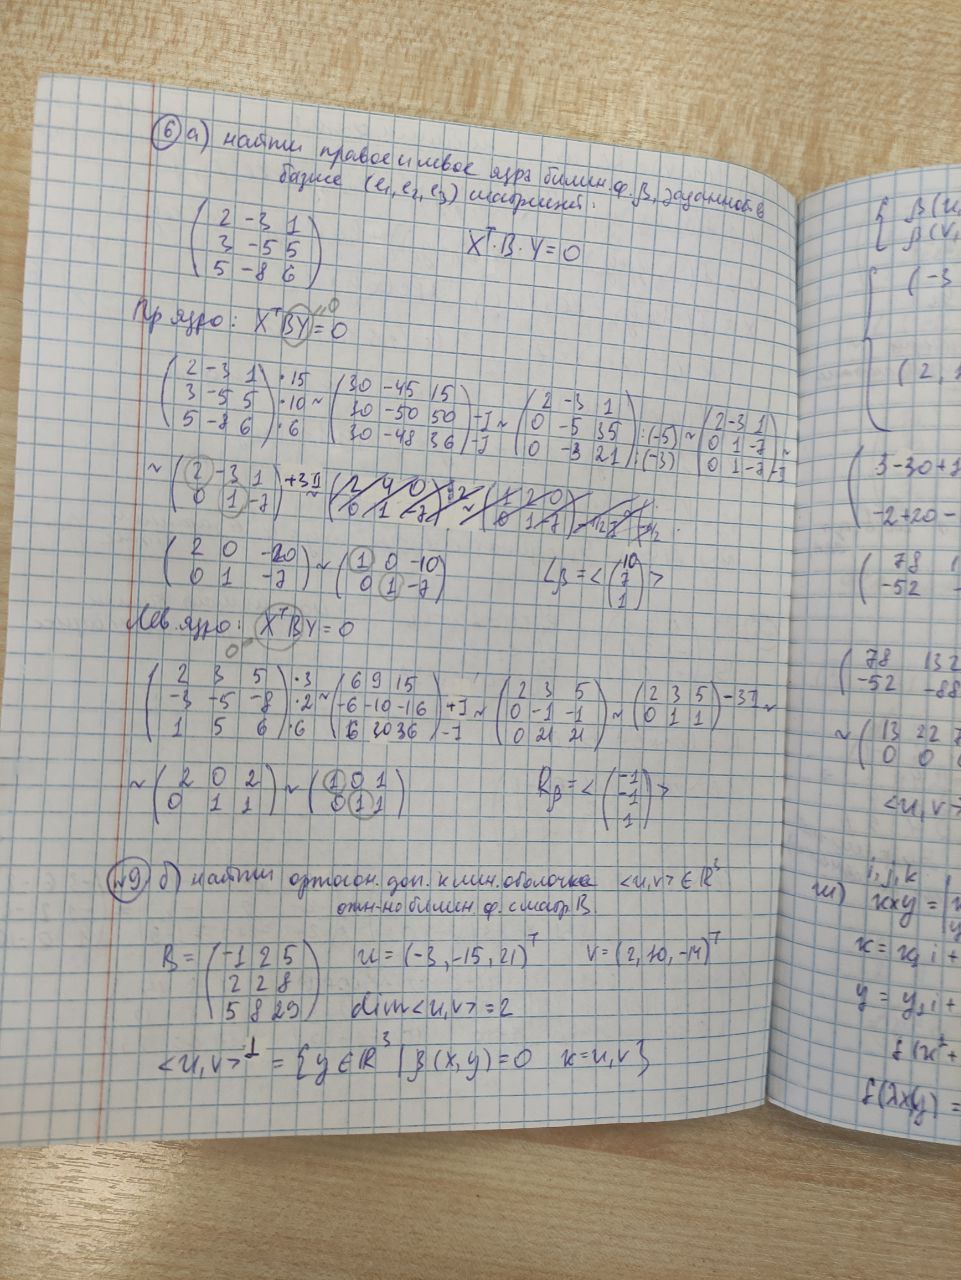 6 а) найти правое и левое ядра билин. ф. β, заданной в
базисе (e₁, e₂, e₃) матрицей:
(2 -3 1
3 -5 5
5 -8 6)
Xᵀ·B·Y=0
Пр ядро: XᵀBY=0
0
(2 -3 1
3 -5 5
5 -8 6) ·15 ·10 ·6 ~ (30 -45 15
30 -50 50
30 -48 36) -I -I ~ (2 -3 1
0 -5 35
0 -3 21) :(-5) :(-3) ~ (2 -3 1
0 1 -7
0 1 -7) -I ~
~ (2 -3 1
0 1 -7) +3II ~
(2 0 -20
0 1 -7) ~ (1 0 -10
0 1 -7)
Lβ = < (10
7
1) >
Лев. ядро: XᵀBY=0
0
(2 3 5
-3 -5 -8
1 5 6) ·3 ·2 ·6 ~ (6 9 15
-6 -10 -16
6 30 36) +I -I ~ (2 3 5
0 -1 -1
0 21 21) ~ (2 3 5
0 1 1) -3II ~
~ (2 0 2
0 1 1) ~ (1 0 1
0 1 1)
Rβ = < (-1
-1
1) >
№9 б) найти ортогон. доп. к лин. оболочке <u,v> ∈ ℝ³
отн-но билин. ф. с матр B.
B = (-1 2 5
2 2 8
5 8 29)
u = (-3, -15, 21)ᵀ v = (2, 10, -14)ᵀ
dim<u,v> = 2
<u,v>⊥ = {y ∈ ℝ³ | β(x,y)=0 x=u,v}
(-3
(2,
3-30+
-2+20-
(78
-52
(78 132
-52 -88
~ (13 22
0 0
<u,v>
i, j, k
ш) x×y =
x = x₁i +
y = y₁i +
f(x²+
f(λxy) =